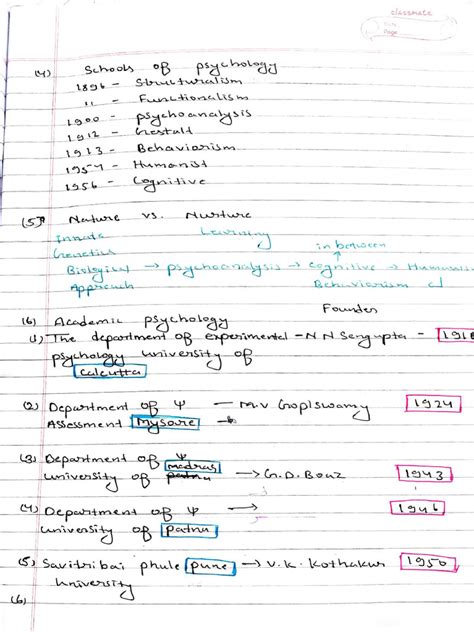 classmate
Date
Page
(4) Schools of psychology
1896 - Structuralism
11 - Functionalism
1900 - psychoanalysis
1912 - Gestalt
1913 - Behaviorism
1954 - Humanist
1956 - Cognitive
(5) Nature vs. Nurture
Innate Learning
Genetics in between
Biological → psychoanalysis → cognitive → Humanism
Approach Behaviorism
Founder
(6) Academic psychology
(1) The department of experimental - N N Sengupta - 1916
psychology university of
Calcutta
(2) Department of Ψ — M.V Goplswamy 1924
Assessment Mysore
(3) Department of Ψ
university of madras → G.D. Boaz 1943
(4) Department of Ψ → 1946
university of patna
(5) Savitribai phule pune → V.K. Kothakur 1950
University
(6)